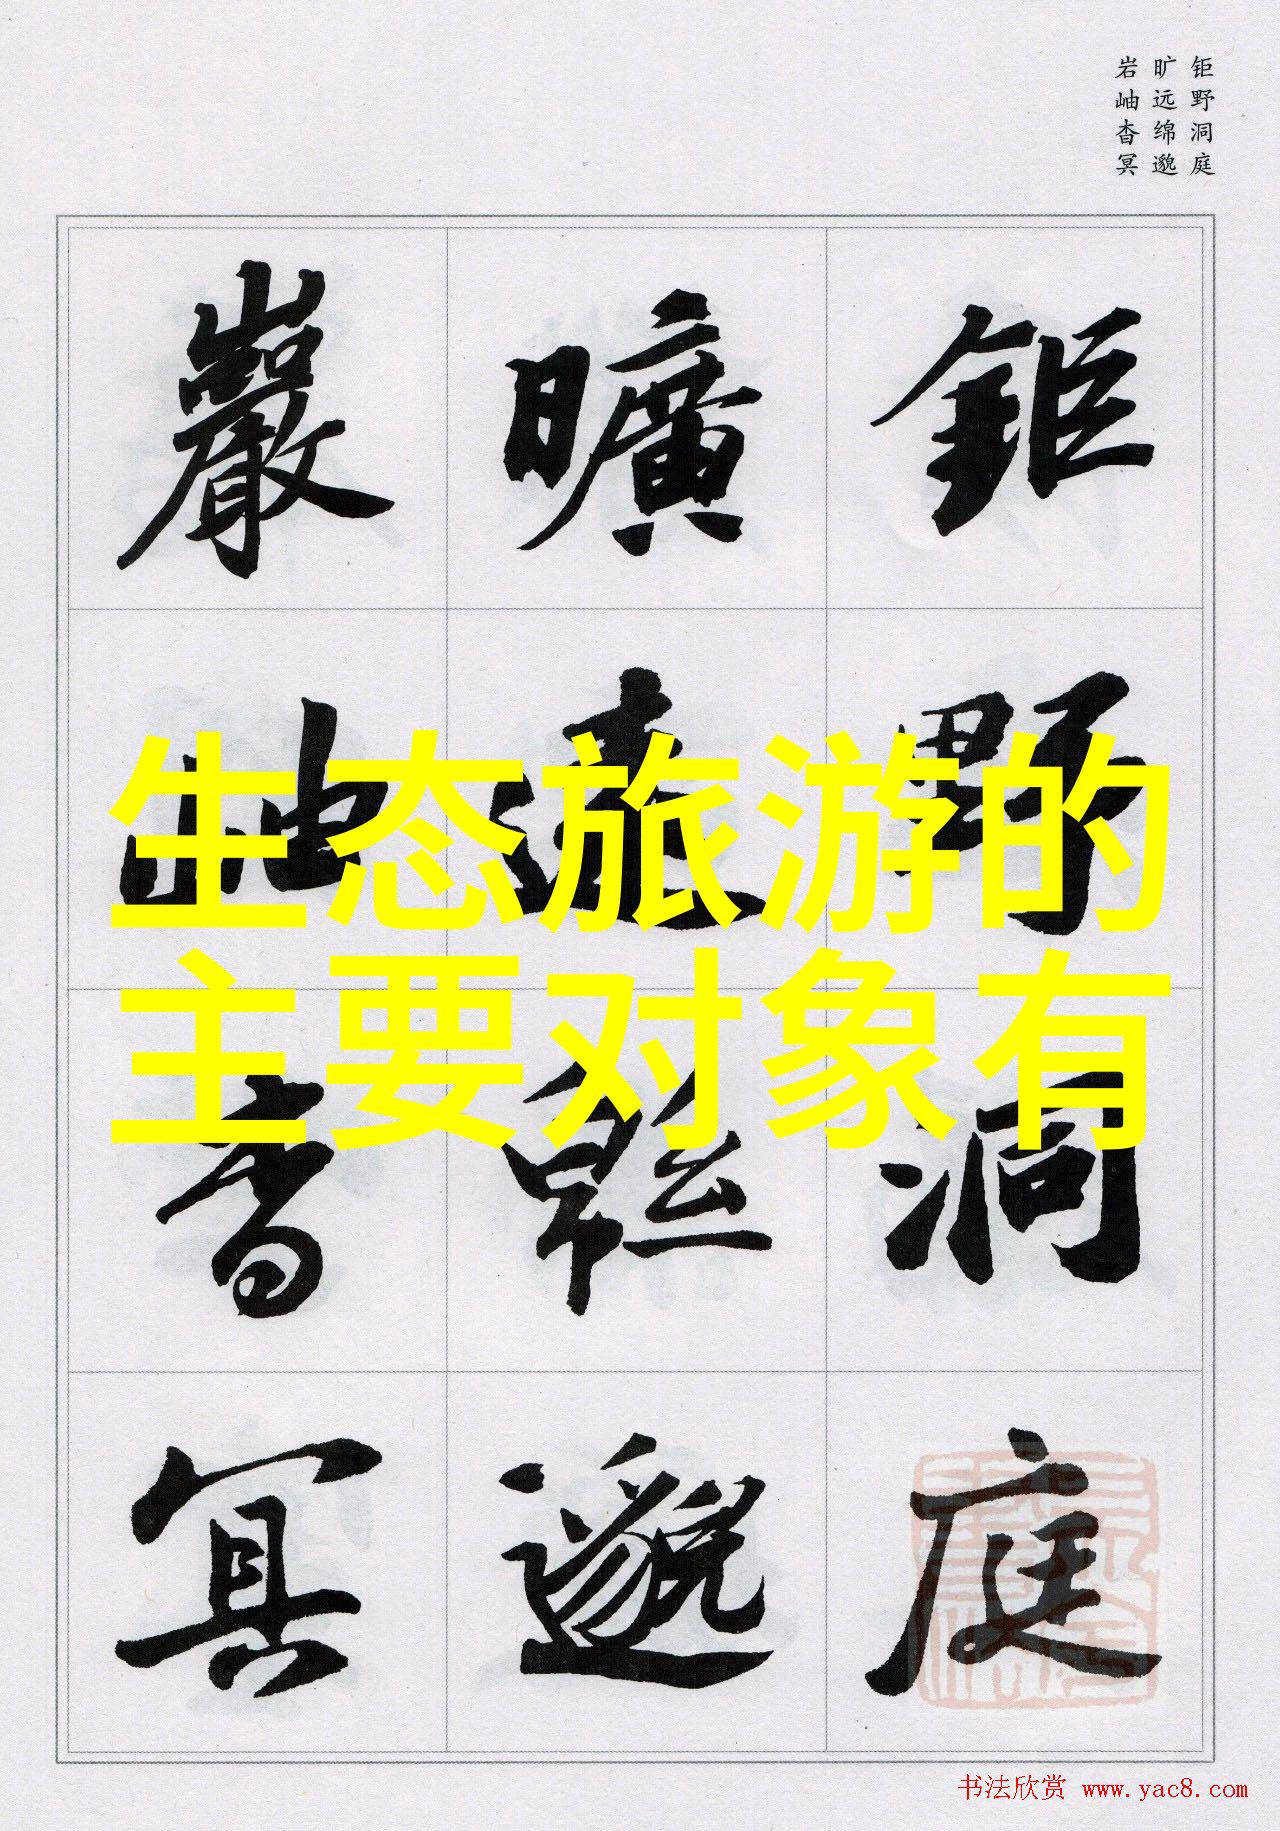 钜野洞庭
旷远绵邈
岩岫杳冥
鉅野洞庭
曠遠緜邈
巖岫杳冥
生态旅游的
主要对象有
书法欣赏 www.yac8.com